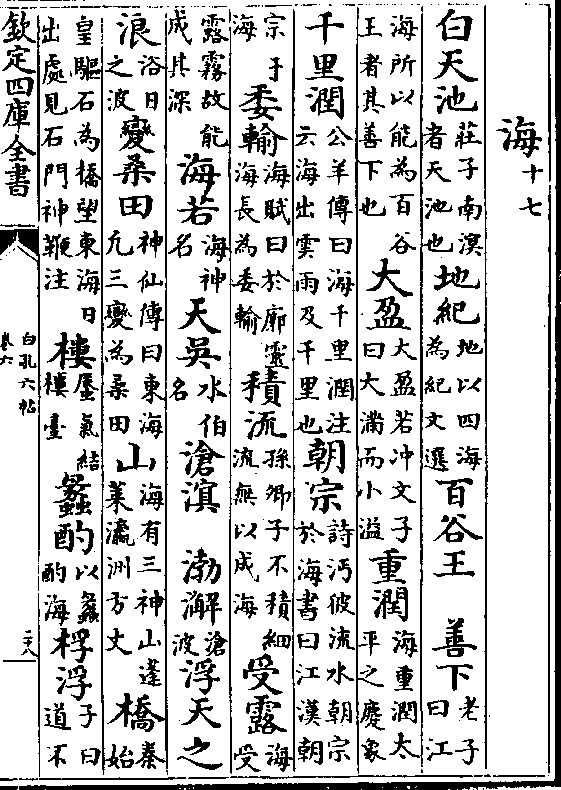 海十七
白天池莊子南溟者天池也地紀地以四海為紀文選百谷王 善下老子曰江
海所以能為百谷王者其善下也大盈大盈若冲文子曰大滿而小溢重潤海重潤太平之慶象
千里潤公羊傳曰海千里潤注云海出雲雨及千里也朝宗詩沔彼流水朝宗於海書曰江漢朝
宗于海委輸海賦曰於廓靈海長為委輸積流孫卿子不積細流無以成海受露海受
露霧故能成其深海若海神名天吳水伯名滄溟 渤澥滄波浮天之
浪浴日之波變桑田神仙傳曰東海凢三變為桑田山海有三神山蓬萊瀛洲方丈橋秦始
皇驅石為橋望東海日出處見石門神鞭注樓蜃氣結樓臺蠡酌以蠡酌海桴浮子曰道不
欽定四庫全書
白孔六帖
卷六
二十八